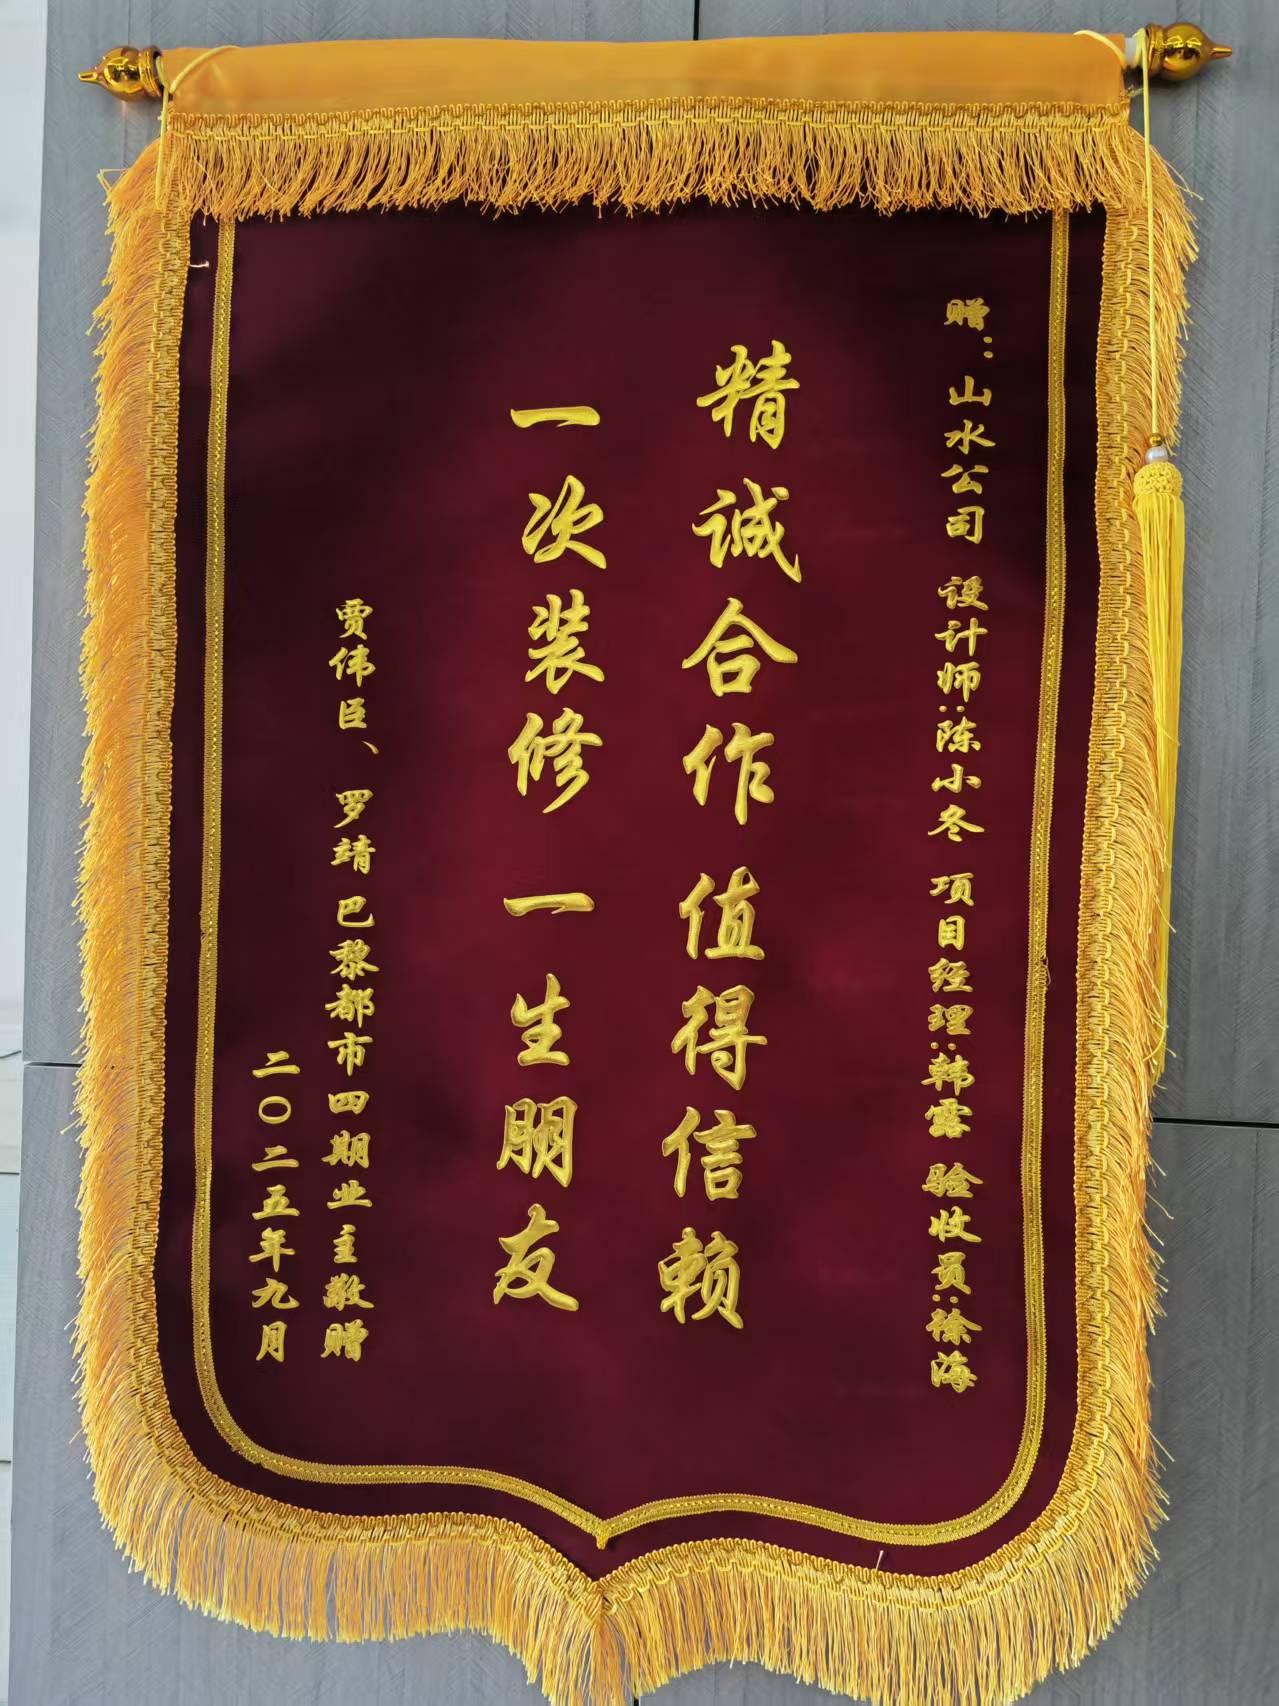 赠：山水公司 设计师：陈小冬 项目经理：韩露 验收员：徐海
精诚合作 值得信赖
一次装修 一生朋友
贾伟臣、罗靖 巴黎都市四期业主敬赠
二〇二五年九月